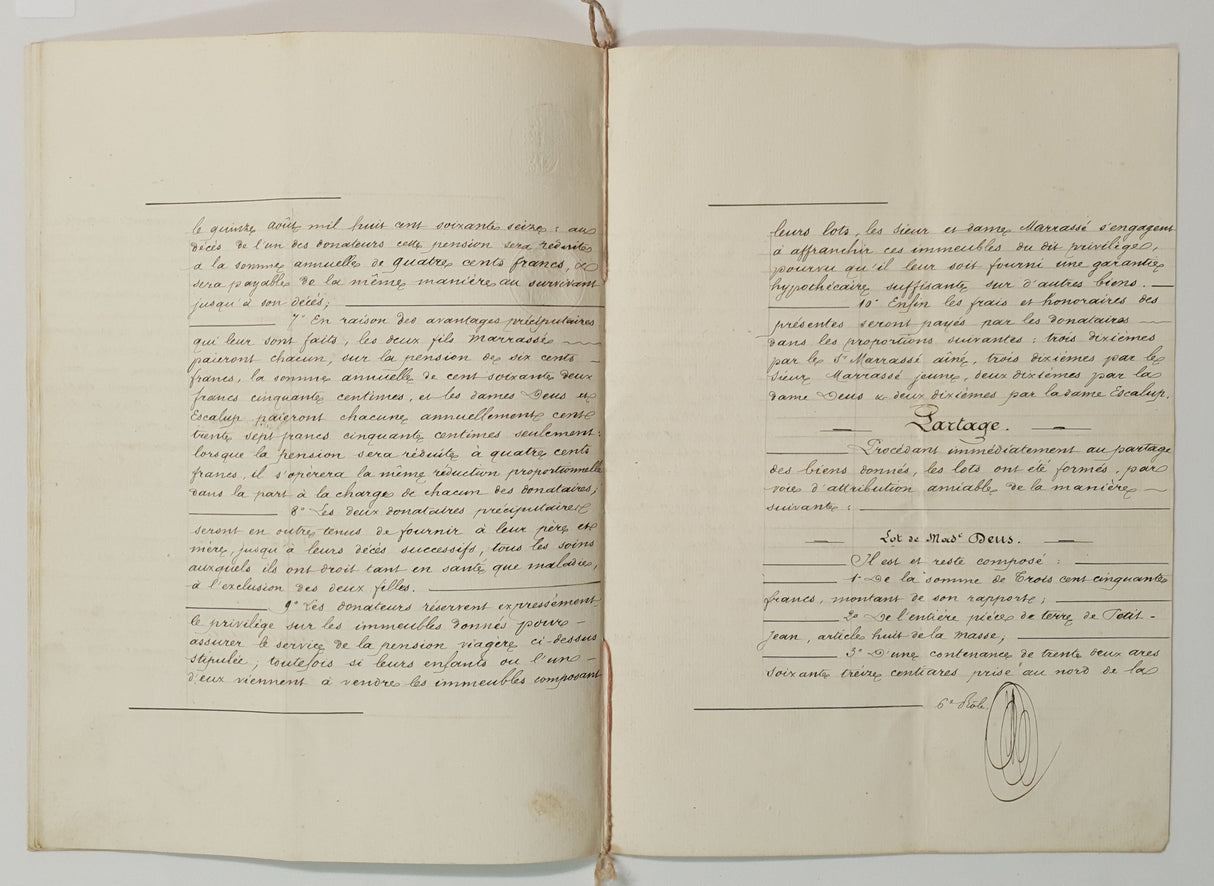 le quinze août mil huit cent soixante seize : au
décès de l'un des donateurs cette pension sera réduite
a la somme annuelle de quatre cents francs, &
sera payable de la même manière au survivant
jusqu'à son décès;
7° En raison des avantages préciputaires
qui leur sont faits, les deux fils Marrassé
paieront chacun, sur la pension de six cents
francs, la somme annuelle de cent soixante deux
francs cinquante centimes, et les dames Deus et
Escalup paieront chacune annuellement cent
trente sept francs cinquante centimes seulement :
lorsque la pension sera réduite à quatre cents
francs, il s'opèrera la même réduction proportionnelle
dans la part à la charge de chacun des donataires;
8° Les deux donataires préciputaires
seront en outre tenus de fournir à leur père et
mère, jusqu'à leurs décès successifs, tous les soins
auxquels ils ont droit tant en santé que maladie,
à l'exclusion des deux filles.
9° Les donateurs réservent expressément
le privilège sur les immeubles donnés pour
assurer le service de la pension viagère ci-dessus
stipulée; toutefois si leurs enfants ou l'un
d'eux viennent à vendre les immeubles composant
leurs lots, les sieur et dame Marrassé s'engagent
à affranchir ces immeubles du dit privilège,
pourvu qu'il leur soit fourni une garantie
hypothécaire suffisante sur d'autres biens.
10° Enfin les frais et honoraires des
présentes seront payés par les donataires
dans les proportions suivantes : trois dixièmes
par le Sr Marrassé aîné, trois dixièmes par le
sieur Marrassé jeune, deux dixièmes par la
dame Deus & deux dixièmes par la dame Escalup.
Partage.
Procédant immédiatement au partage
des biens donnés, les lots ont été formés, par
voie d'attribution amiable de la manière
suivante :
Lot de Made Deus.
Il est et reste composé :
1° De la somme de Trois cent cinquante
francs, montant de son rapport;
2° De l'entière pièce de terre de Petit-
Jean, article huit de la masse;
3° D'une contenance de trente deux ares
soixante treize centiares prise au nord de la
6e Rôle.